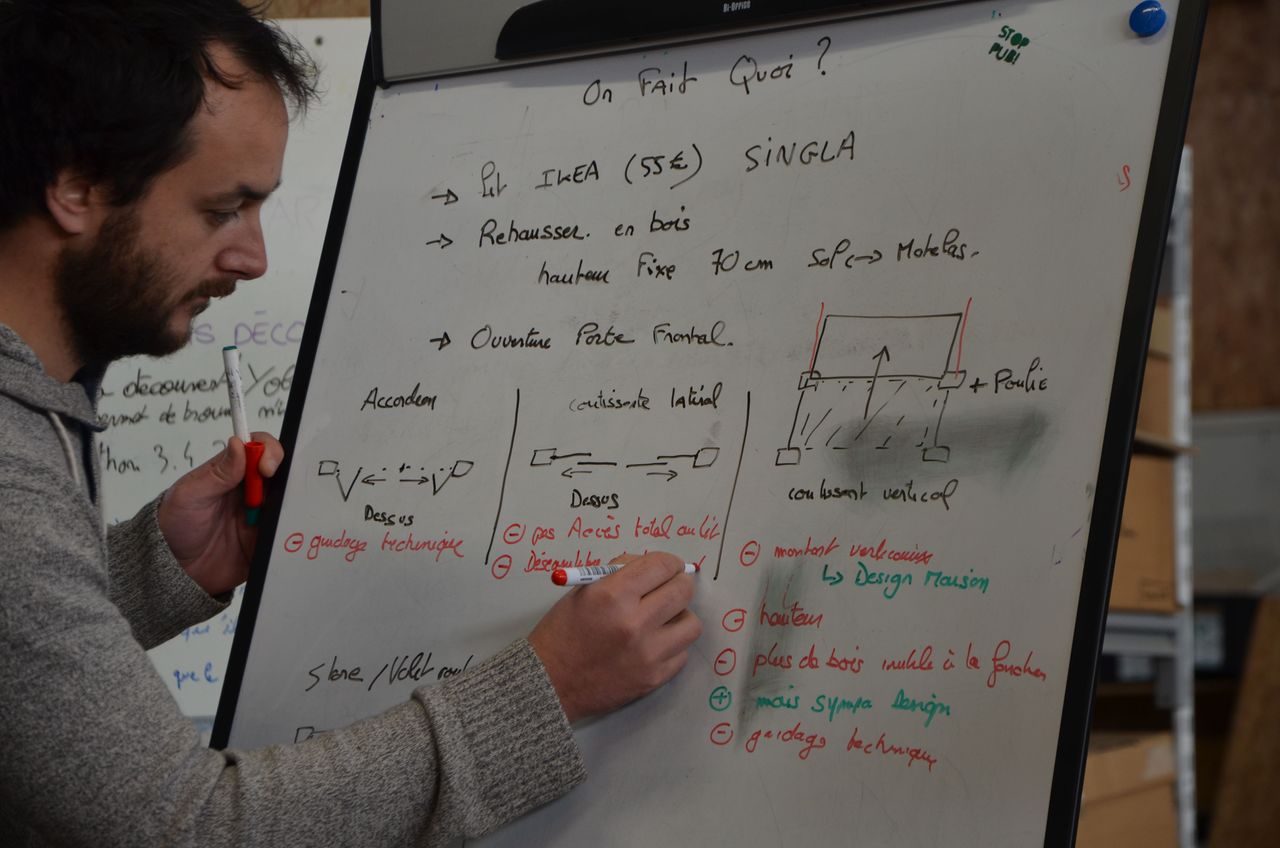 Bi-Office
STOP
PUB!
On Fait Quoi ?
→ Lit IKEA (55€) SiNGLA
→ Rehausser. en bois
hauteur Fixe 70 cm Sol ↔ Matelas.
→ Ouverture Porte Frontal.
+ Poulie
Accordeon
Dessus
⊖ guidage technique
coulissante latéral
Dessus
⊖ pas Accès total au lit
⊖
coulissant vertical
⊖ montant verticaux
↳ Design Maison
⊖ hauteur
⊖ plus de bois inutile à la fonction
⊕ mais sympa Design
⊖ guidage technique
Store / Volet
S DÉCO
decouvert
que le